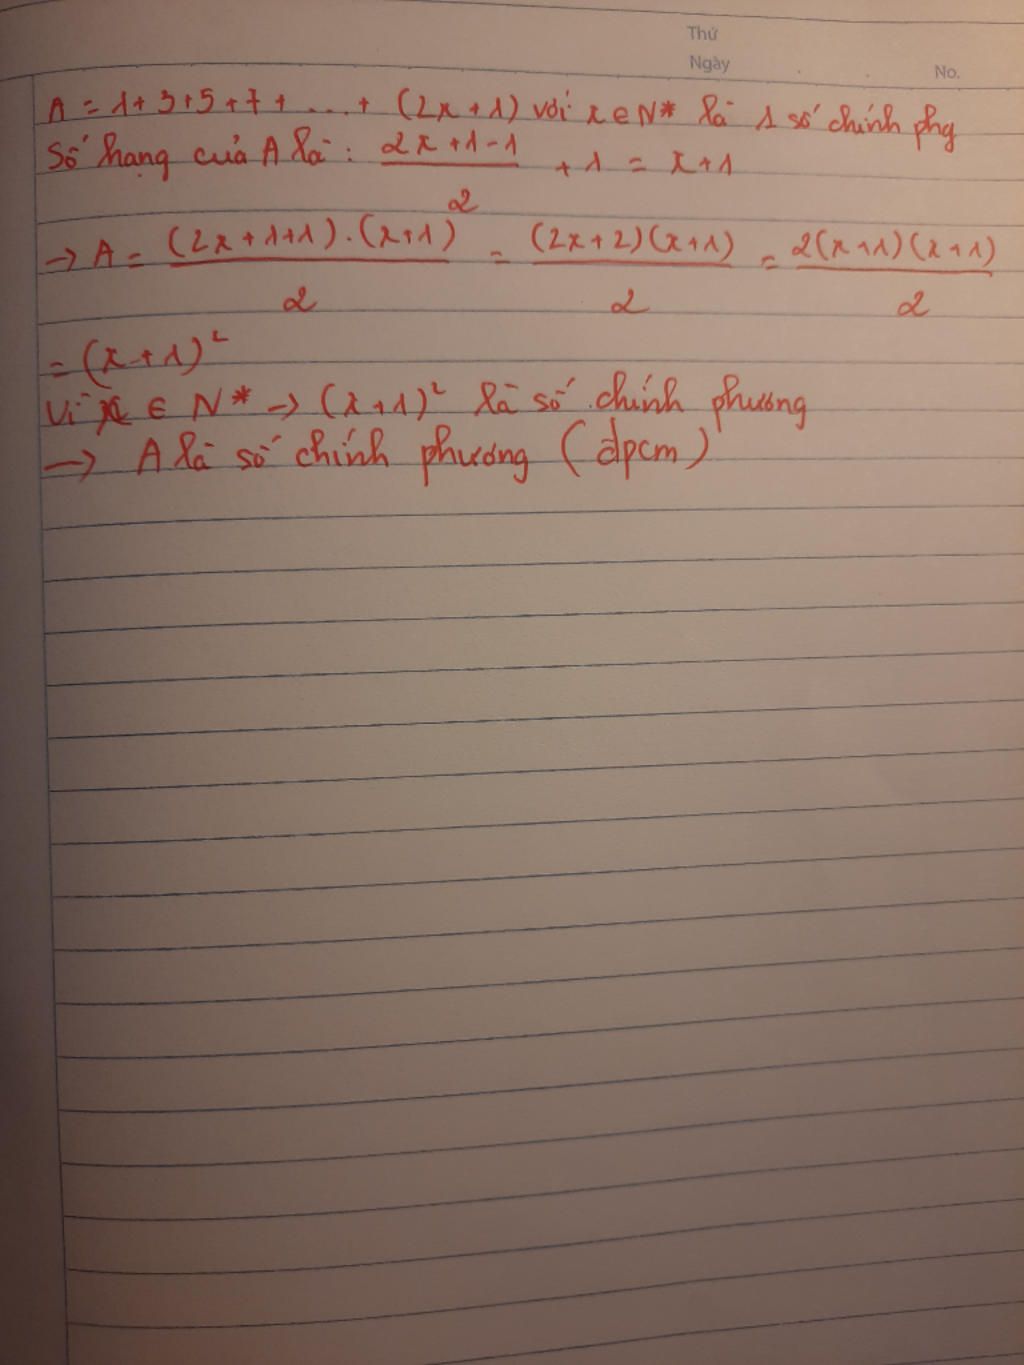 Thứ
Ngày
No.
A = 1+3+5+7+...+ (2x+1) với x∈N* là 1 số chính phg
Số hạng của A là: (2x+1-1)/2 + 1 = x+1
→ A = ((2x+1+1).(x+1))/2 = ((2x+2)(x+1))/2 = (2(x+1)(x+1))/2
= (x+1)²
Vì x ∈ N* → (x+1)² là số chính phương
→ A là số chính phương (đpcm)